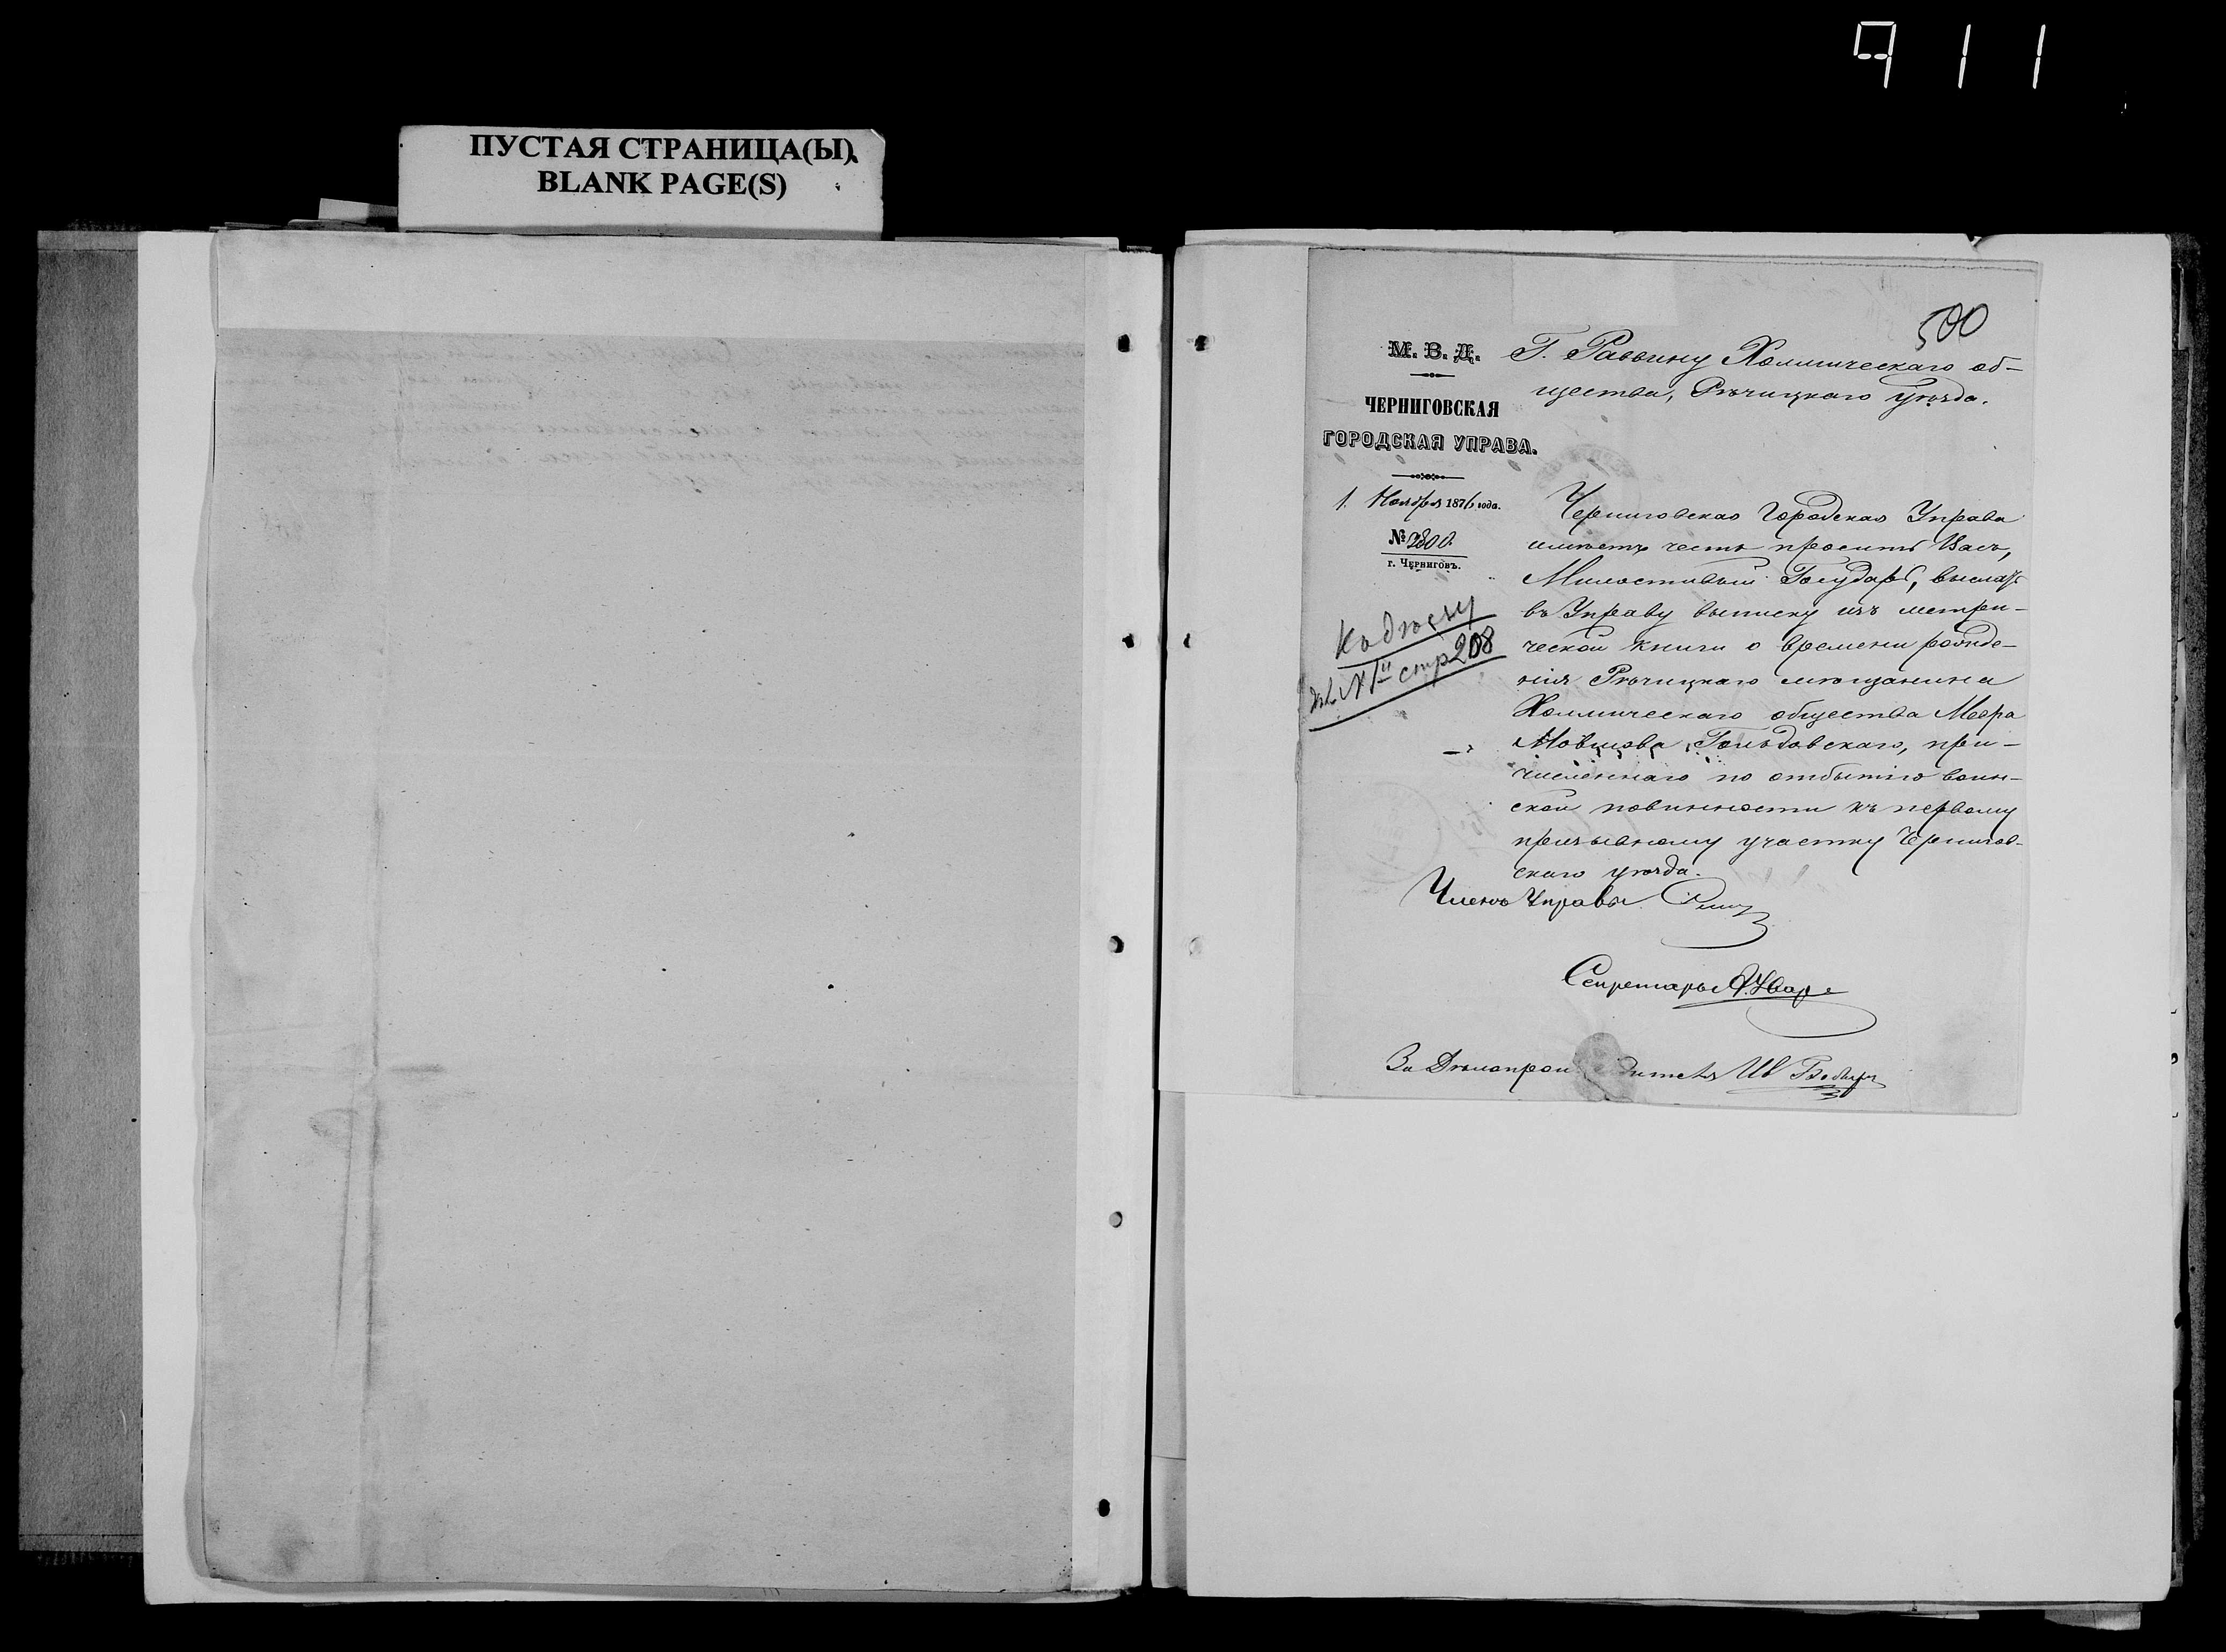 911
ПУСТАЯ СТРАНИЦА(Ы)
BLANK PAGE(S)
500
М. В. Д.
ЧЕРНИГОВСКАЯ
ГОРОДСКАЯ УПРАВА.
1. Ноября 1876 года.
№ 2800.
г. Черниговъ.
Къ дѣлу
стр 208
Г. Раввину Холмическаго об-
щества, Рѣчицкаго уѣзда.
Черниговская Городская Управа
имѣетъ честь просить Васъ,
Милостивый Государь, выслать
въ Управу выписку изъ метри-
ческой книги о времени рожде-
нія Рѣчицкаго мѣщанина
Холмическаго общества Меера
Мовшова Гольдовскаго, при-
численнаго по отбытію воин-
ской повинности къ первому
призывному участку Чернигов-
скаго уѣзда.
Членъ Управы
Секретарь
За Дѣлопроизводителя Ив